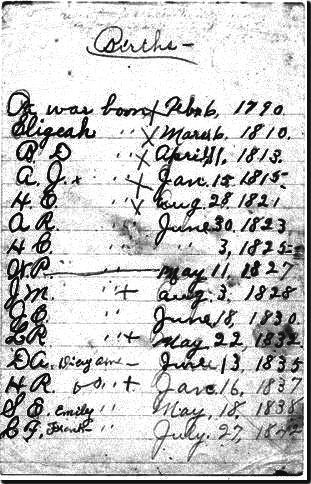 Births —
Pa was born x Feb. 6, 1790.
Eligeah " x March 6, 1810.
B. D " x April 11, 1813.
A. J. x " + Jan. 15. 1815—
H. E " x Aug. 28, 1821
A R. " June 30, 1823
H C " " 3, 1825=
W. P. " May 11, 1827
J. M. " + Aug. 3, 1828
J. E. " June 18, 1830.
L R " + May 22, 1832
D A. " June 13, 1835
H R. " + Jan. 16, 1837
S. E. Emily " May, 18, 1838
L F, Frank — " July 27, 1842